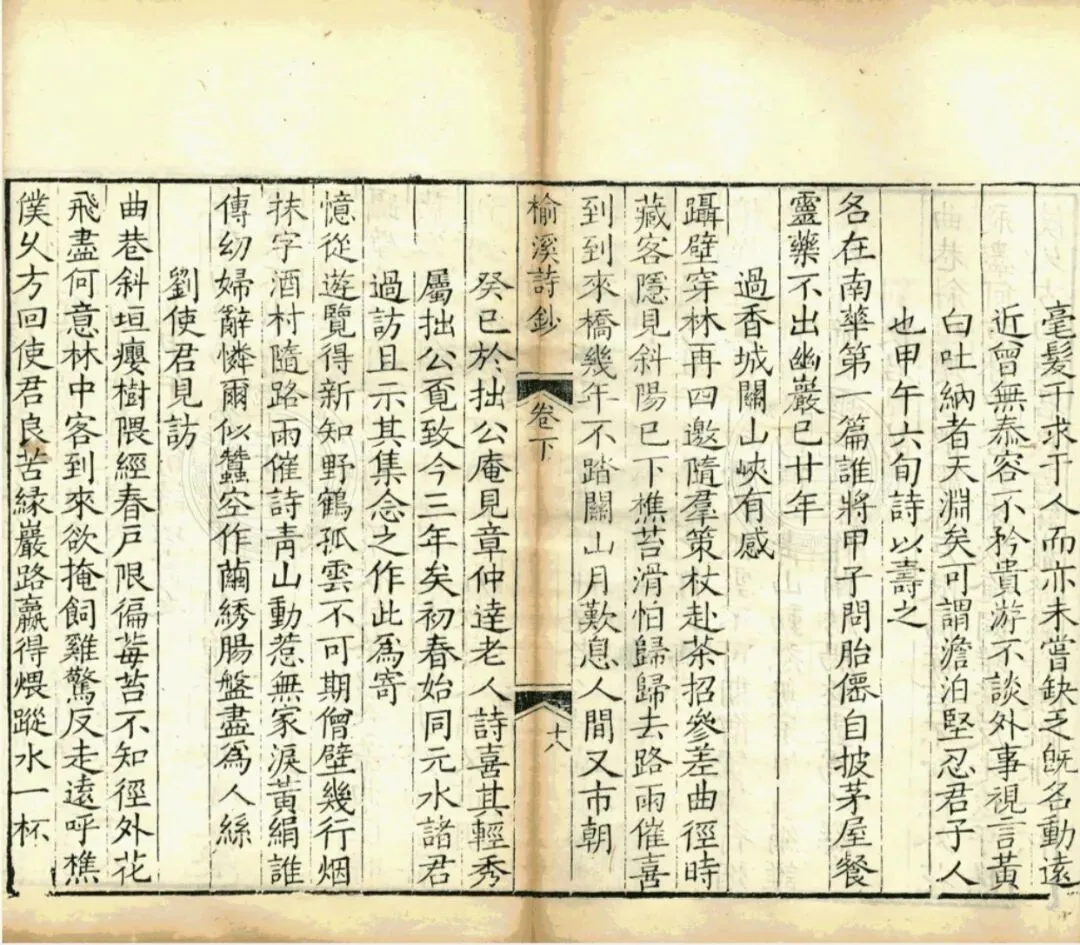 毫髮干求于人而亦未嘗缺乏旣名動遠
近曾無泰容不矜貴游不談外事視言黃
白吐納者天淵矣可謂澹泊堅忍君子人
也甲午六旬詩以壽之
名在南華第一篇誰將甲子問胎僊自披茅屋餐
靈藥不出幽巖已廿年
過香城關山峽有感
躡壁穿林再四邀隨羣策杖赴茶招參差曲徑時
藏客隱見斜陽已下樵苔滑怕歸歸去路雨催喜
到到來橋幾年不踏關山月歎息人間又市朝
榆溪詩鈔
卷下
十八
癸巳於拙公庵見章仲達老人詩喜其輕秀
屬拙公覔致今三年矣初春始同元水諸君
過訪且示其集念之作此爲寄
憶從遊覽得新知野鶴孤雲不可期僧壁幾行烟
抹字酒村隨路雨催詩青山動惹無家淚黃絹誰
傳幼婦辭憐爾似蠶空作繭綉腸盤盡爲人絲
劉使君見訪
曲巷斜垣癭樹隈經春戸限徧莓苔不知徑外花
飛盡何意林中客到來欲掩飼雞驚反走遠呼樵
僕乆方回使君良苦緣巖路贏得煨蹤水一杯